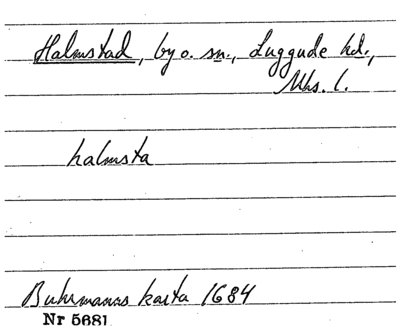 Halmstad, by o. sn., Luggude hd.,
Mhs. l.
halmsta
Buhrmanns karta 1684
Nr 5681